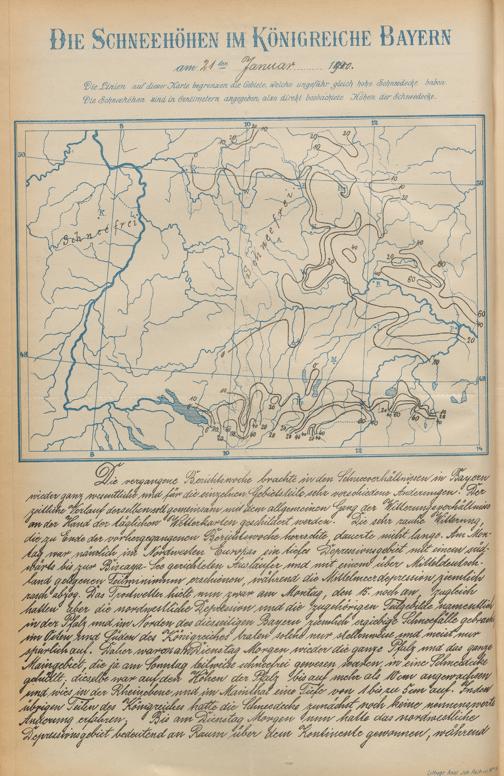 DIE SCHNEEHÖHEN IM KÖNIGREICHE BAYERN
am 21ten Januar 1900.
Die Linien auf dieser Karte begrenzen die Gebiete, welche ungefähr gleich hohe Schneedecke haben.
Die Schneehöhen sind in Centimetern angegeben, also direkt beobachtete Höhen der Schneedecke.
8 10 12
50
Schneefrei
Schneefrei
48
8 10 12
Die vergangene Berichtswoche brachte in den Schneeverhältnissen in Bayern
wieder ganz wesentliche und für die einzelnen Gebietsteile sehr verschiedene Änderungen. Der
zeitliche Verlauf derselben soll gemeinsam mit dem allgemeinen Gang der Witterungsverhältnisse
an der Hand der täglichen Wetterkarten geschildert werden. Die sehr rauhe Witterung,
die zu Ende der vorhergegangenen Berichtswoche herrschte, dauerte nicht lange. Am Mon-
tag war nämlich im Nordwesten Europas ein tiefes Depressionsgebiet mit einem süd-
wärts bis zur Biscaya See gerichteten Ausläufer und mit einem über Mitteldeutsch-
land gelegenen Teilminimum erschienen, während die Mittelmeerdepression ziemlich
rasch abzog. Das Frostwetter hielt nun zwar am Montag, den 15. noch an, zugleich
hatten aber die nordwestliche Depression und die zugehörigen Teilgebilde namentlich
in der Pfalz und im Norden des diesseitigen Bayerns ziemlich ergiebige Schneefälle gebracht,
im Osten und Süden des Königreiches traten solche nur stellenweise und meist nur
spärlich auf. Daher waren am Dienstag Morgen wieder die ganze Pfalz und das ganze
Maingebiet, die ja am Sonntag teilweise schneefrei gewesen waren, in eine Schneedecke
gehüllt; dieselbe war auf den Höhen der Pfalz bis auf mehr als 10cm angewachsen
und wies in der Rheinebene und im Mainthal eine Tiefe von 1 bis zu 5cm auf. In den
übrigen Teilen des Königreiches hatte die Schneedecke zunächst noch keine nennenswerte
Änderung erfahren. Bis am Dienstag Morgen nun hatte das nordwestliche
Depressionsgebiet bedeutend an Raum über dem Kontinente gewonnen, während